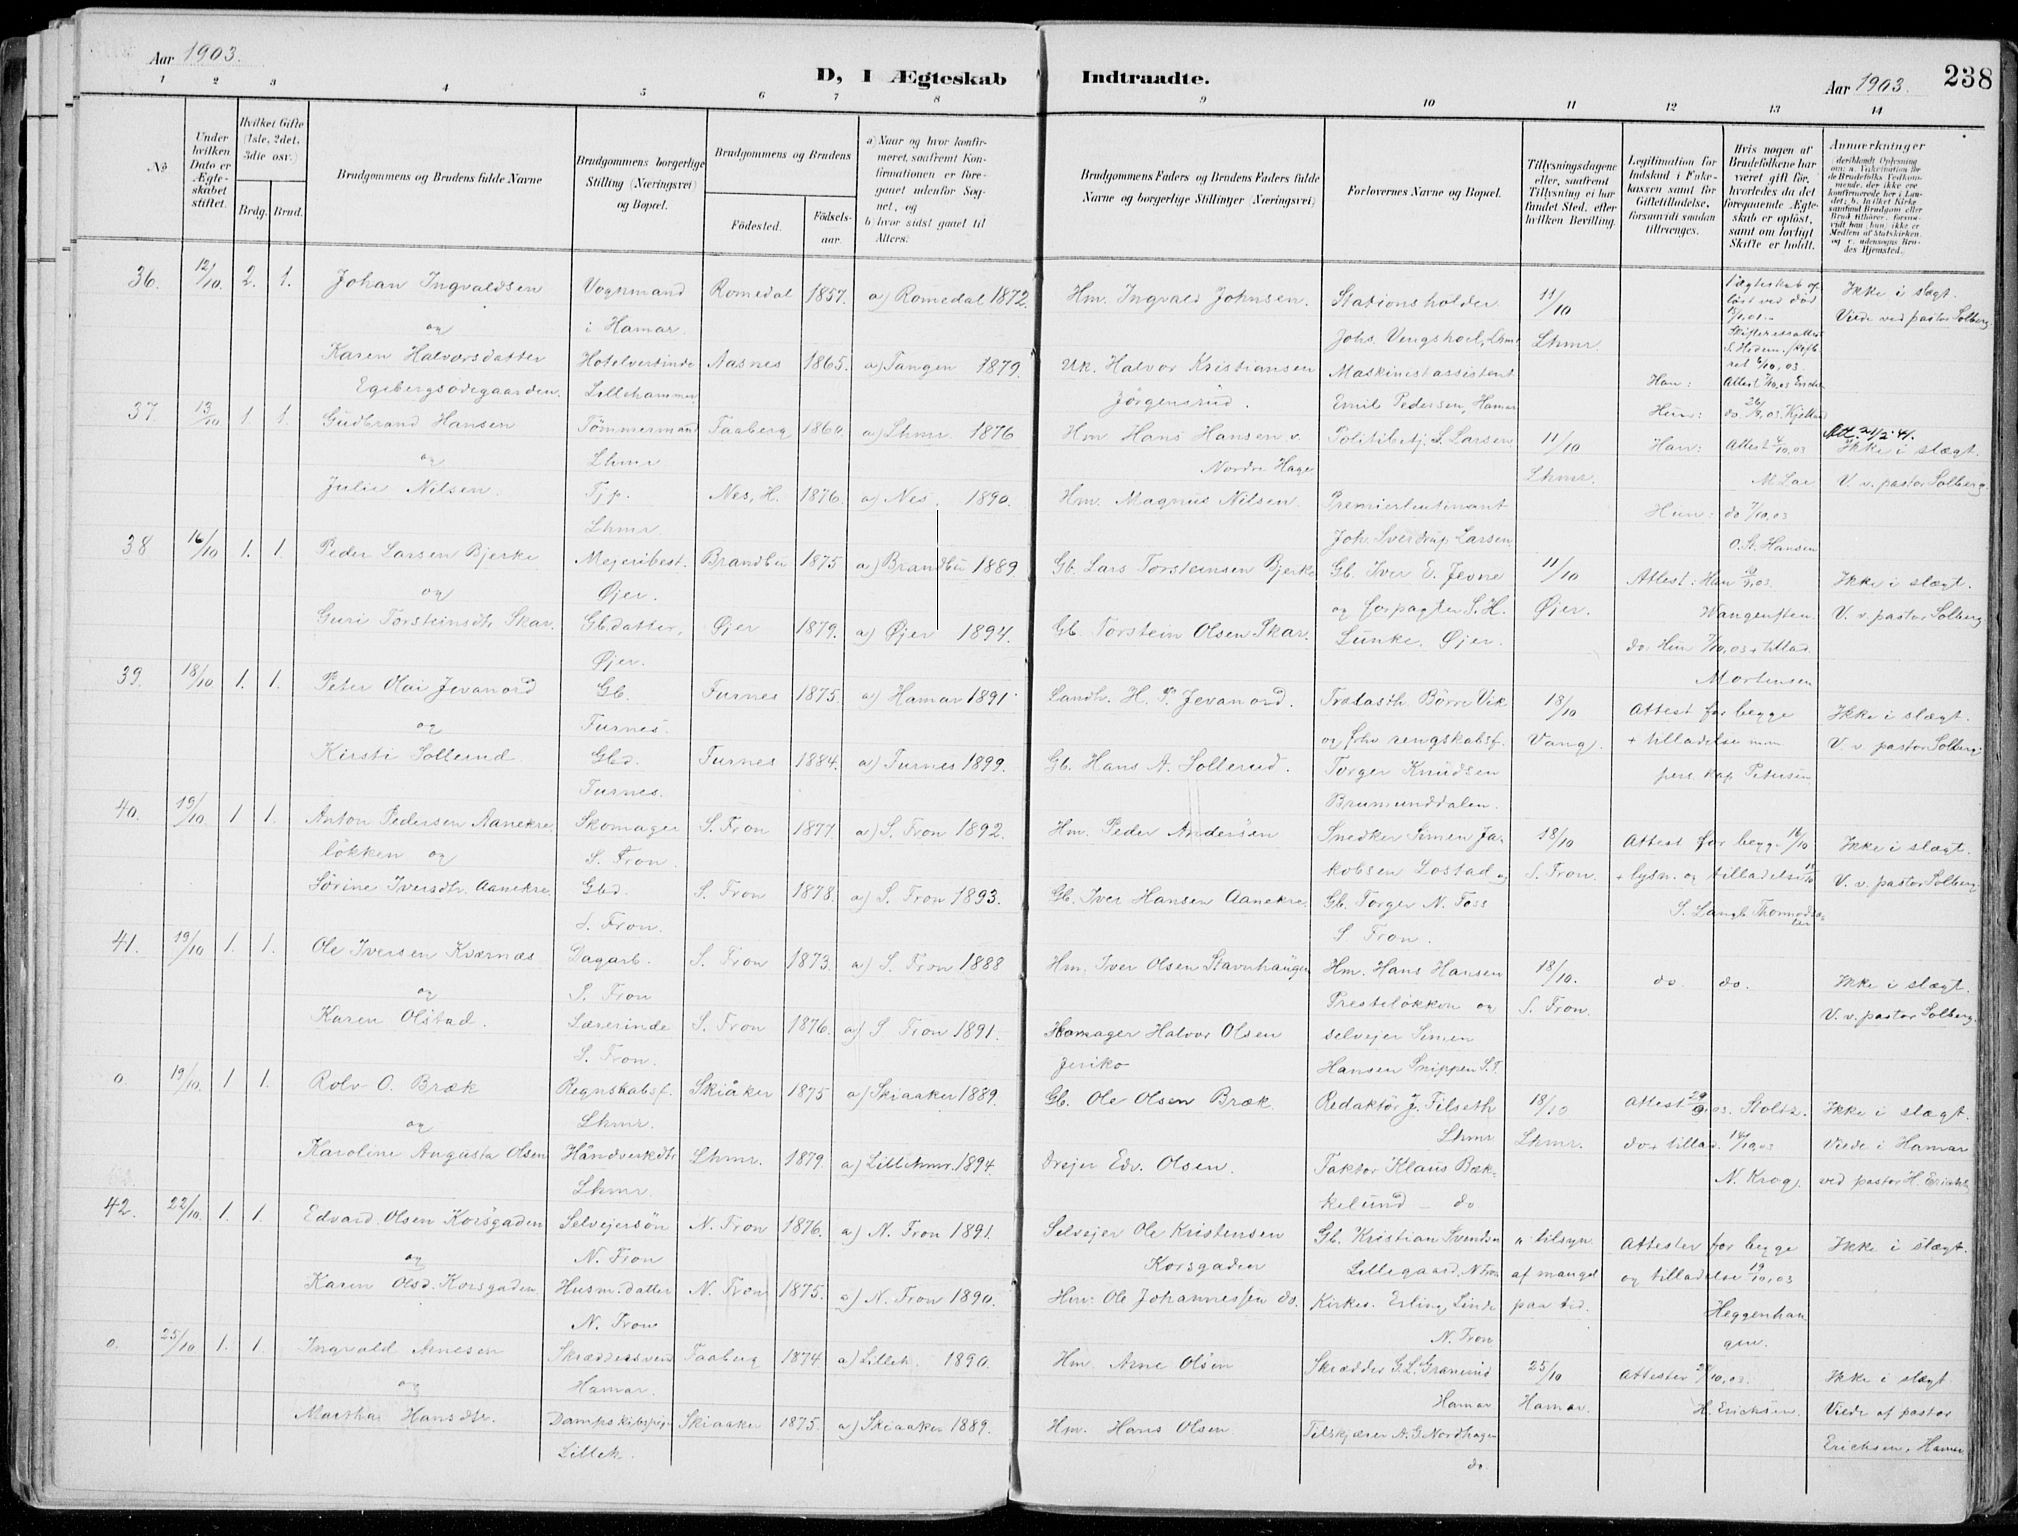 Aar 1903.
D, I Ægteskab Indtraadte.
Aar 1903. 238
1 2 3 4 5 6 7 8 9 10 11 12 13 14
No
Under hvilken Dato er Ægteskabet stiftet.
Hvilket Gifte (1ste, 2det, 3die osv.)
Brdg. Brud.
Brudgommens og Brudens fulde Navne
Brudgommens borgerlige Stilling (Næringsvei) og Bopæl.
Brudgommens og Brudens
Fødested. Fødselsaar.
a) Naar og hvor konfirmeret, saafremt Konfirmationen er foregaaet udenfor Sognet, og
b) hvor sidst gaaet til Alters.
Brudgommens Faders og Brudens Faders fulde Navne og borgerlige Stillinger (Næringsvei)
Forlovernes Navne og Bopæl.
Tillysningsdagene eller, saafremt Tillysning ei har fundet Sted, efter hvilken Bevilling.
Legitimation for Indskud i Enkekassen samt for Giftetilladelse, forsaavidt saadan tiltrænges.
Hvis nogen af Brudefolkene har været gift før, hvorledes da det foregaaende Ægteskab er opløst, samt om lovligt Skifte er holdt.
Anmærkninger
36. 12/10. 2. 1. Johan Ingvaldsen Vognmand Romedal 1857. a) Romedal 1872. Hm. Ingvald Johnsen. Stationsholder 11/10 Ikke i slægt.
og i Hamar. Johs. Vengshoel, Lhmr Lhmr. Viede ved pastor Solberg.
Karen Halvorsdatter Hotelvertinde Aasnes 1865. a) Tangen 1879. Uk. Halvor Kristiansen Maskinistassistent
Egebergsødegaarden. Lillehammer Jørgensrud. Emil Pedersen, Hamar Han:
37. 13/10 1. 1. Gudbrand Hansen Tømmermand Faaberg 1860. a) Lhmr 1876 Hm Hans Hansen v. Politibetj. L. Larsen 11/10 Han: Attest 4/10.03 Ikke i slægt.
og Lhmr Nordre Hage Lhmr. V. v. pastor Solberg
Julie Nilsen. Tjp. Nes, H. 1876. a) Nes. 1890. Hm. Magnus Nilsen. Premierleutinant Hun: do 7/10.03
Lhmr Joh. Sverdrup Larsen O. St. Hansen
38 16/10 1. 1. Peder Larsen Bjerke Mejeribest. Brandbu 1875 a) Brandbu 1889. Gb. Lars Torsteinsen Bjerke Gb. Iver E. Jevne 11/10 Attest: Han Ikke i slægt.
og Øjer. og forpagter S. H. Øjer. Wangensten V. v. pastor Solberg
Guri Torsteinsdtr Skar. Gb.datter, Øjer 1879. a) Øjer 1894. Gb. Torstein Olsen Skar. Lunke, Øjer. do. Hun 7/10.03 + tillad.
Øjer. Mortensen
39. 18/10 1. 1. Peter Olai Jevanord Gb. Furnes 1875. a) Hamar 1891 Landh. H. P. Jevanord. Trælasth. Børre Vik 18/10 Attest for begge Ikke i slægt.
og Furnes. og fhv regnskabsf. Vang. + tilladelse m.m V. v. pastor Solberg.
Kirsti Sollerud. Gbd. Furnes 1884. a) Furnes 1899. Gb. Hans A. Sollerud. Torger Knudsen pers. kap Petersen
Furnes. Brumunddalen.
40. 19/10. 1 1. Anton Pedersen Aanekre Skomager S. Fron 1877. a) S. Fron 1892. Hm. Peder Andersen Snedker Simen Ja- 18/10 Attest for begge 16/10 Ikke i slægt.
løkken og S. Fron. kobsen Lostad og S. Fron. + lysn. og tilladelse V. v. pastor Solberg.
Sørine Iversdtr. Aanekre Gbd. S. Fron 1878. a) S. Fron 1893. Gb. Iver Hansen Aanekre. Gb. Torger N. Foss S. Langb. Thormods
S. Fron. S Fron.
41. 19/10 1. 1. Ole Iversen Kværnæs Dagarb. S. Fron 1873. a) S. Fron 1888 Hm. Iver Olsen Stavnhaugen Hm. Hans Hansen 18/10. do. do. Ikke i slægt.
og S. Fron Presteløkken og S. Fron. V. v. pastor Solberg.
Karen Olstad. Lærerinde S. Fron 1876. a) S Fron 1891. Skomager Halvor Olsen selvejer Simen
S. Fron. Jeriko Hansen Snippen S.F.
0. 19/10. 1 1. Rolv O. Bræk Regnskabsf. Skiåker 1875 a) Skiaaker 1889. Gb. Ole Olsen Bræk. Redaktør J. Filseth 18/10 Attest 29/9.03. Stoltz. Ikke i slægt.
og Lhmr. Lhmr Lhmr. do + tillad. Viede i Hamar
Karoline Augusta Olsen Håndverkdtr Lhmr. 1879. a) Lillehmr. 1894. Drejer Edv. Olsen. Faktor Klaus Bæk- N. Krog. ved pastor H. Ericks
Lhmr. kelund – do
42. 22/10. 1. 1. Edvard Olsen Korsgaden Selvejersøn N. Fron 1876. a) N. Fron 1891. Selvejer Ole Kristensen Gb. Kristian Svendsen Attester for begge Ikke i slægt.
og N. Fron Korsgaden Lillegaard, N. Fron af mangel og tilladelse 19/10.03
Karen Olsd. Korsgaden Husm.datter N. Fron 1875. a) N. Fron 1890. Hm. Ole Johannessen do. Kirkes. Erling Linde paa tid. Heggenhau
N. Fron N. Fron gen.
0. 25/10 1. 1. Ingvald Arnesen Skræddersvend Faaberg 1874 a) Lilleh. 1890. Hm. Arne Olsen Skrædder G. L. Granrud 25/10 Attester Ikke i slægt
og Hamar. Hamar Hamar. H. Ericksen. Viede af pastor
Marthe Hansdtr. Dampskibspige Skiaaker 1875. a) Skiaaker 1889. Hm. Hans Olsen. Tilskjærer A. G. Nordhagen Erichsen, Hamar
Lilleh. do